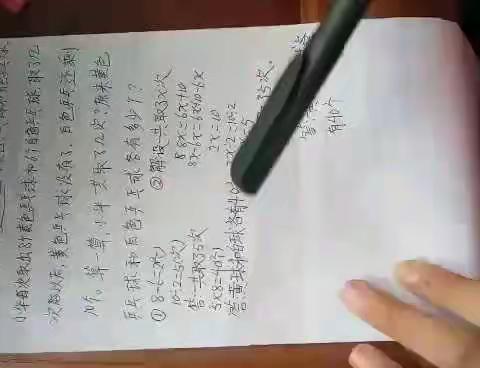 小华每次取出8个黄色乒乓球和6个白色乒乓球,取了几
次后以后,黄色乒乓球没有了,白色乒乓还剩
10个。算一算,小华一共取了几次?原来黄色
乒乓球和白色乒乓球各有多少个?
① 8-6=2(个)
10÷2=5(次)
答:一共取了5次
5×8=40(个)
答:黄球和白球各有40
② 解设一共取了x次
8x=6x+10
8x-6x=6x+10-6x
2x=10
2x÷2=10÷2
x=5
35次。
有40个